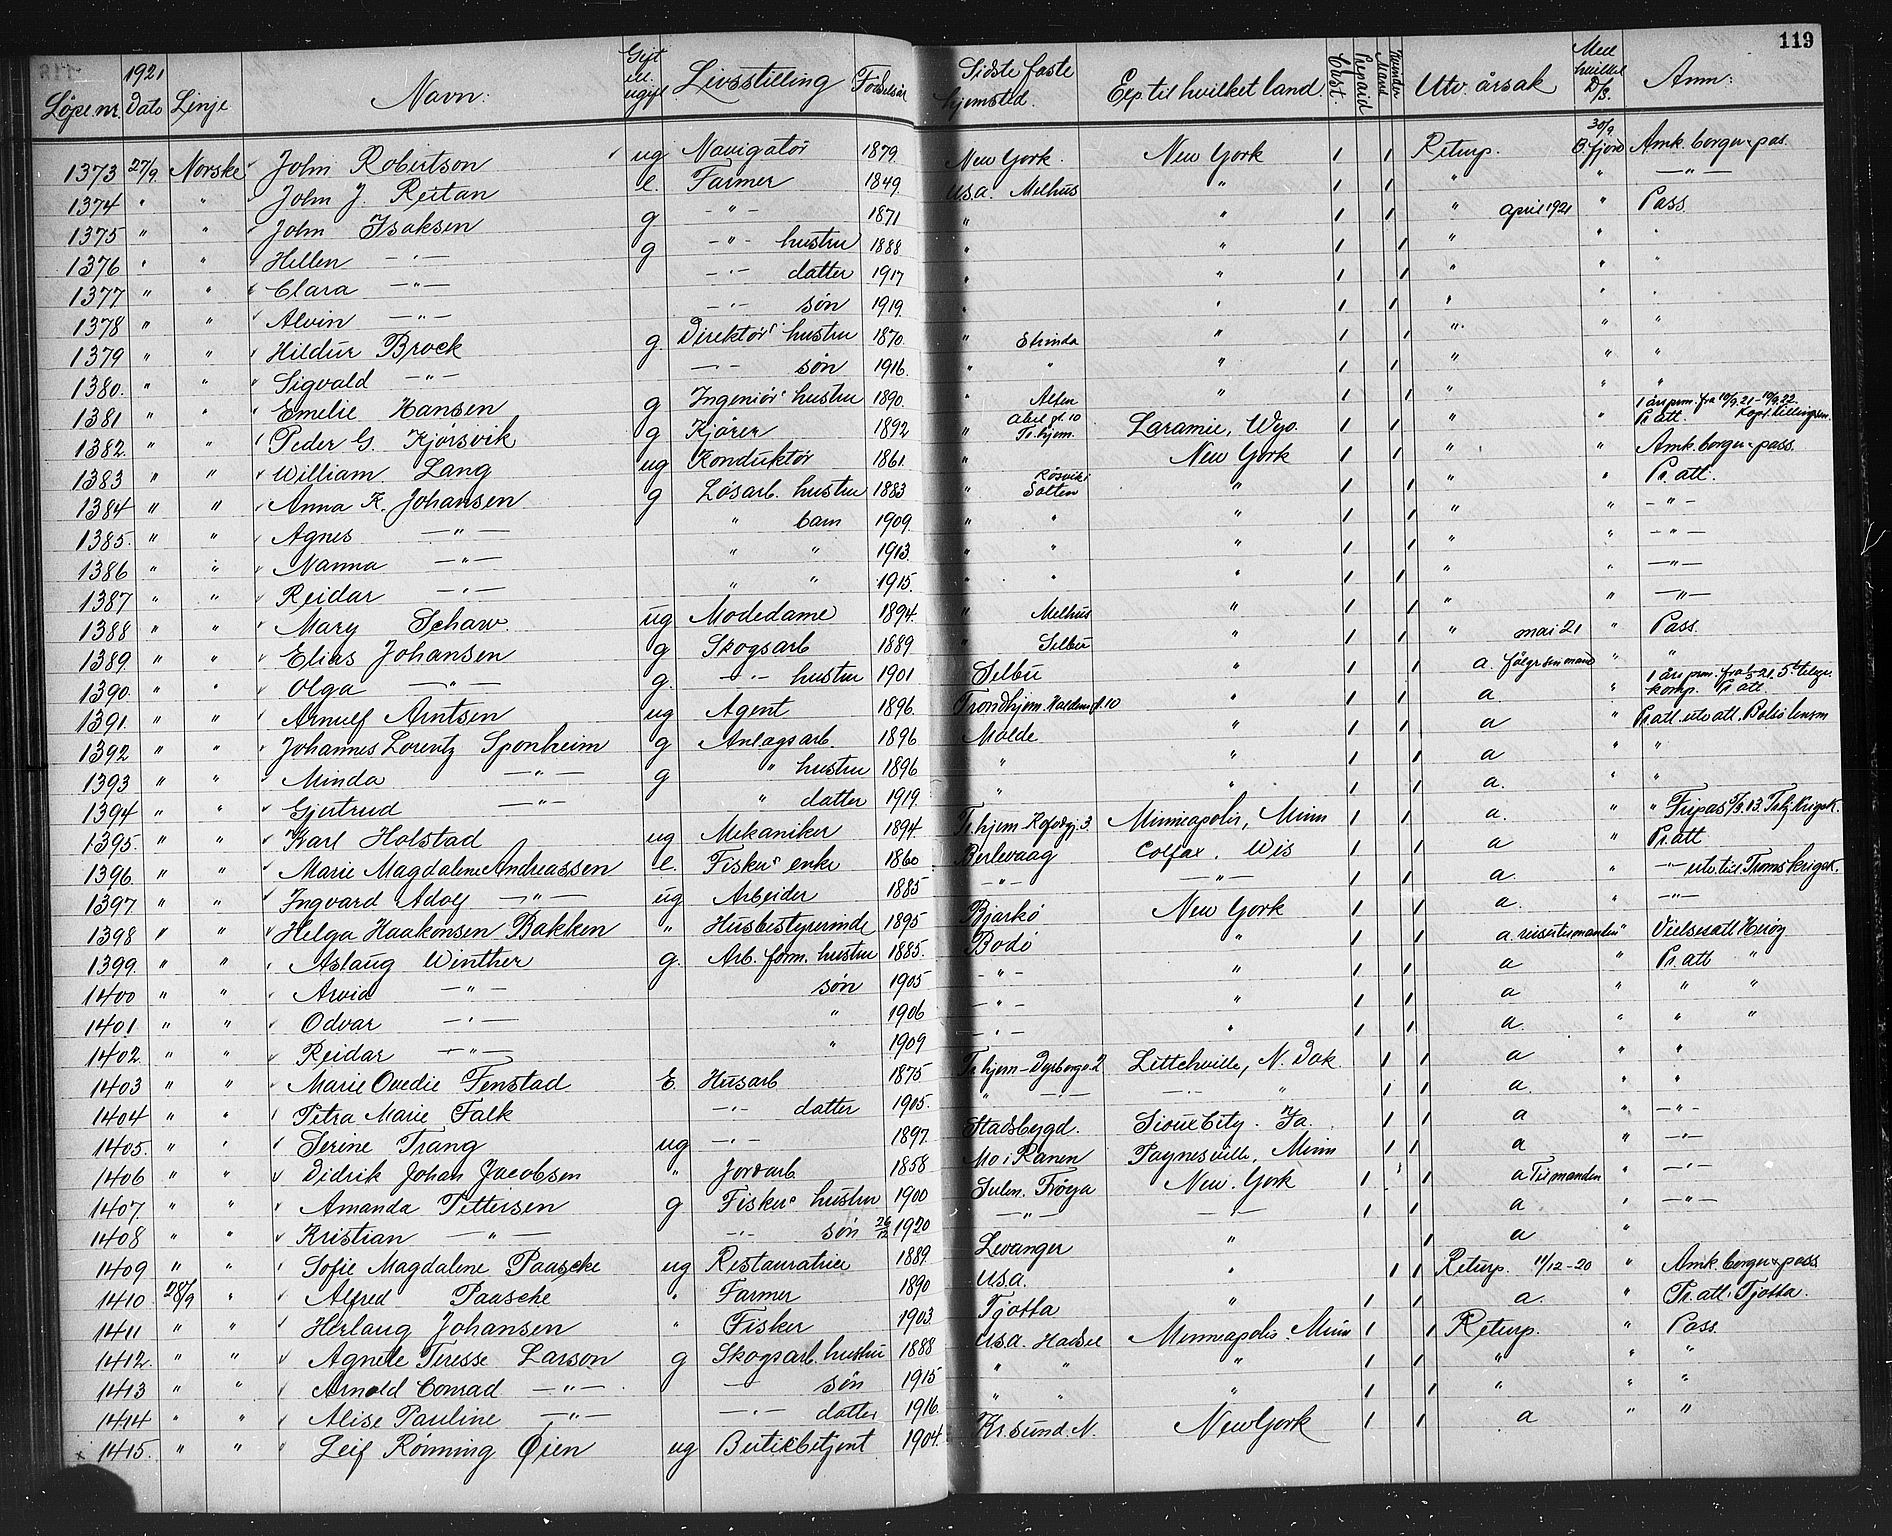 119
Löpe nr. 1921 Dato Linje Navn: Gift el. ugift Livsstilling Födselsår Sidste faste hjemsted. Exp. til hvilket land. Cust. Prepaid Mand Kvinder Utv. årsak Med hvilket D/S. Anm:
1373 27/9. Norske John Robertson ug Navigatör 1879. New York. New York 1 1 Returp. 30/9 B.fjord Amk. borger pas.
1374 " " John J. Reitan e. Farmer 1849. U.S.a. Melhus " 1 1 " " —"—
1375 " " John Isaksen g —"— 1871 " " 1 1 " april 1921 " Pass
1376 " " Hellen —"— g —"— hustru 1888 " " 1 1 " " "
1377 " " Clara —"— —"— datter 1917 " " 1 1 " " "
1378 " " Alvin —"— —"— sön 1919. " " 1 1 " "
1379 " " Hildur Brock g. Direktörs hustru 1870. " Strinda " 1 1 " " "
1380. " " Sigvald —"— —"— sön 1916. " " " 1 1 " " "
1381 " " Emelie Hansen g Ingeniörs hustru 1890. " " 1 1 " " "
1382. " " Peder G. Kjörsvik g Kjörer 1892 " Tr.hjem. Laramie, Wyo. 1 1 " " 1 års prm. fra 10/9.21–10/9.22. Pr. att.
1383 " " William Lang ug Konduktör 1861. " New York 1 1 " " Amk. borger pass.
1384 " " Anna K. Johansen g Lösarb. hustru 1883 " Rösvik Salten " 1 1 " " Pr. att.
1385. " " Agnes —"— " barn 1909. " " " 1 1 " " —"—
1386 " " Nanna —"— " " 1913. " " " 1 1 " " —"—
1387 " " Reidar —"— " " 1915. " " " 1 1 " " —"—
1388 " " Mary Schaw. ug Modedame 1894. " Melhus " 1 1 " " —"—
1389. " " Elias Johansen g Skogsarb 1889. " Selbu " 1 1 " mai 21 " Pass.
1390. " " Olga —"— g. —"— hustru 1901 Selbu " 1 1 a. fölger sin mand " "
1391. " " Arnulf Arntsen ug Agent 1896. Trondhjem " 1 1 a. " komp. Pr. att.
1392 " " Johannes Lorentz Sponheim g Anlagsarb. 1896 Molde " 1 1 a " Pr. att. utv att.
1393 " " Minda —"— g " hustru 1896 " " 1 1 a " "
1394 " " Gjertrud —"— " datter 1919. " " 1 1 a. " "
1395. " " Karl Holstad ug Mekaniker 1894 Tr.hjem Minneapolis, Minn 1 1 a. " " Fripas
1396. " " Marie Magdalene Andreassen e. Fiskers enke 1860 Berlevaag Colfax, Wis 1 1 a " Pr. att
1397. " " Ingvard Adolf —"— ug Arbeider 1885 —"— —"— 1 1 a. " —"— utv. til Troms Krigsk.
1398 " " Helga Haakonsen Bakken " Husbestyrerinde 1895 Bjarkö New York 1 1 a. " —"—
1399. " " Aslaug Winther g. Arb. form. hustru 1885. Bodö " 1 1 a. " Vielsesatt Heröy
1400 " " Arvid —"— sön 1905 —"— " 1 1 a " Pr. att "
1401. " " Odvar —"— " 1906 —"— " 1 1 a " " "
1402. " " Reidar —"— " 1909 —"— " 1 1 a. " " "
1403 " " Marie Ovedie Fenstad E. Husarb 1875 Tr.hjem Litchville, N. Dak 1 1 a " "
1404 " " Petra Marie Falk —"— datter 1905. " —"— —"— " 1 1 a. " "
1405. " " Serine Trang ug —"— 1897. Stadsbygd. Sioux City. Ia. 1 1 a " —"—
1406 " " Didrik Johan Jacobsen " Jordarb. 1858 Mo i Ranen Paynesville, Minn 1 1 a " —"—
1407. " " Amanda Pettersen g Fiskers hustru 1900 Sulen. Fröya New York 1 1 a Til manden " —"—
1408 " " Kristian —"— —"— sön 26/12 1920 —"— —"— 1 1 a " —"—
1409 " " Sofie Magdalene Paasche ug Restauratrice 1889. Levanger " 1 a "
1410 28/9 " Alfred Paasche " Farmer 1890 U.S.a. " 1 1 Returp. 11/12–20 " Amk. borger pass
1411 " " Herlaug Johansen " Fisker 1903 Tjotta " 1 1 a. " Pr. att. Tjotta.
1412. " " Agnete Teresse Larson g Skogsarb. hustru 1888 U.S.a. Hadsel Minneapolis. Minn 1 1 Returp. " Pass.
1413 " " Arnold Conrad —"— —"— sön 1915 " " " 1 1 " " "
1414 " " Alise Pauline —"— —"— datter 1916. " " " 1 1 " " "
x 1415. " " Leif Rönning Öien ug Butikbetjent 1904. Kr.sund. N. New York 1 1 a " "